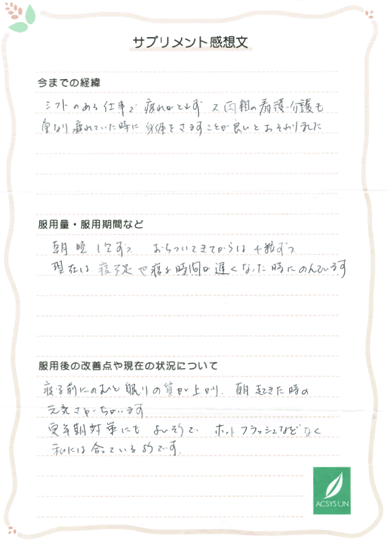 サプリメント感想文
今までの経緯
シフトのある仕事で 疲れがとれず 又 両親の看護・介護も
重なり疲れていた時に 身体をさますことが良いとおそわりました
服用量・服用期間など
朝晩 1包ずつ おちついてきてからは 十粒ずつ
現在は 寝不足や寝る時間が遅くなった時にのんでいます
服用後の改善点や現在の状況について
寝る前にのむと眠りの質が上がり、朝起きた時の
元気さがちがいます
更年期対策にも よいそうで ホットフラッシュなどなく
私には合っているようです。
ACSYS UN